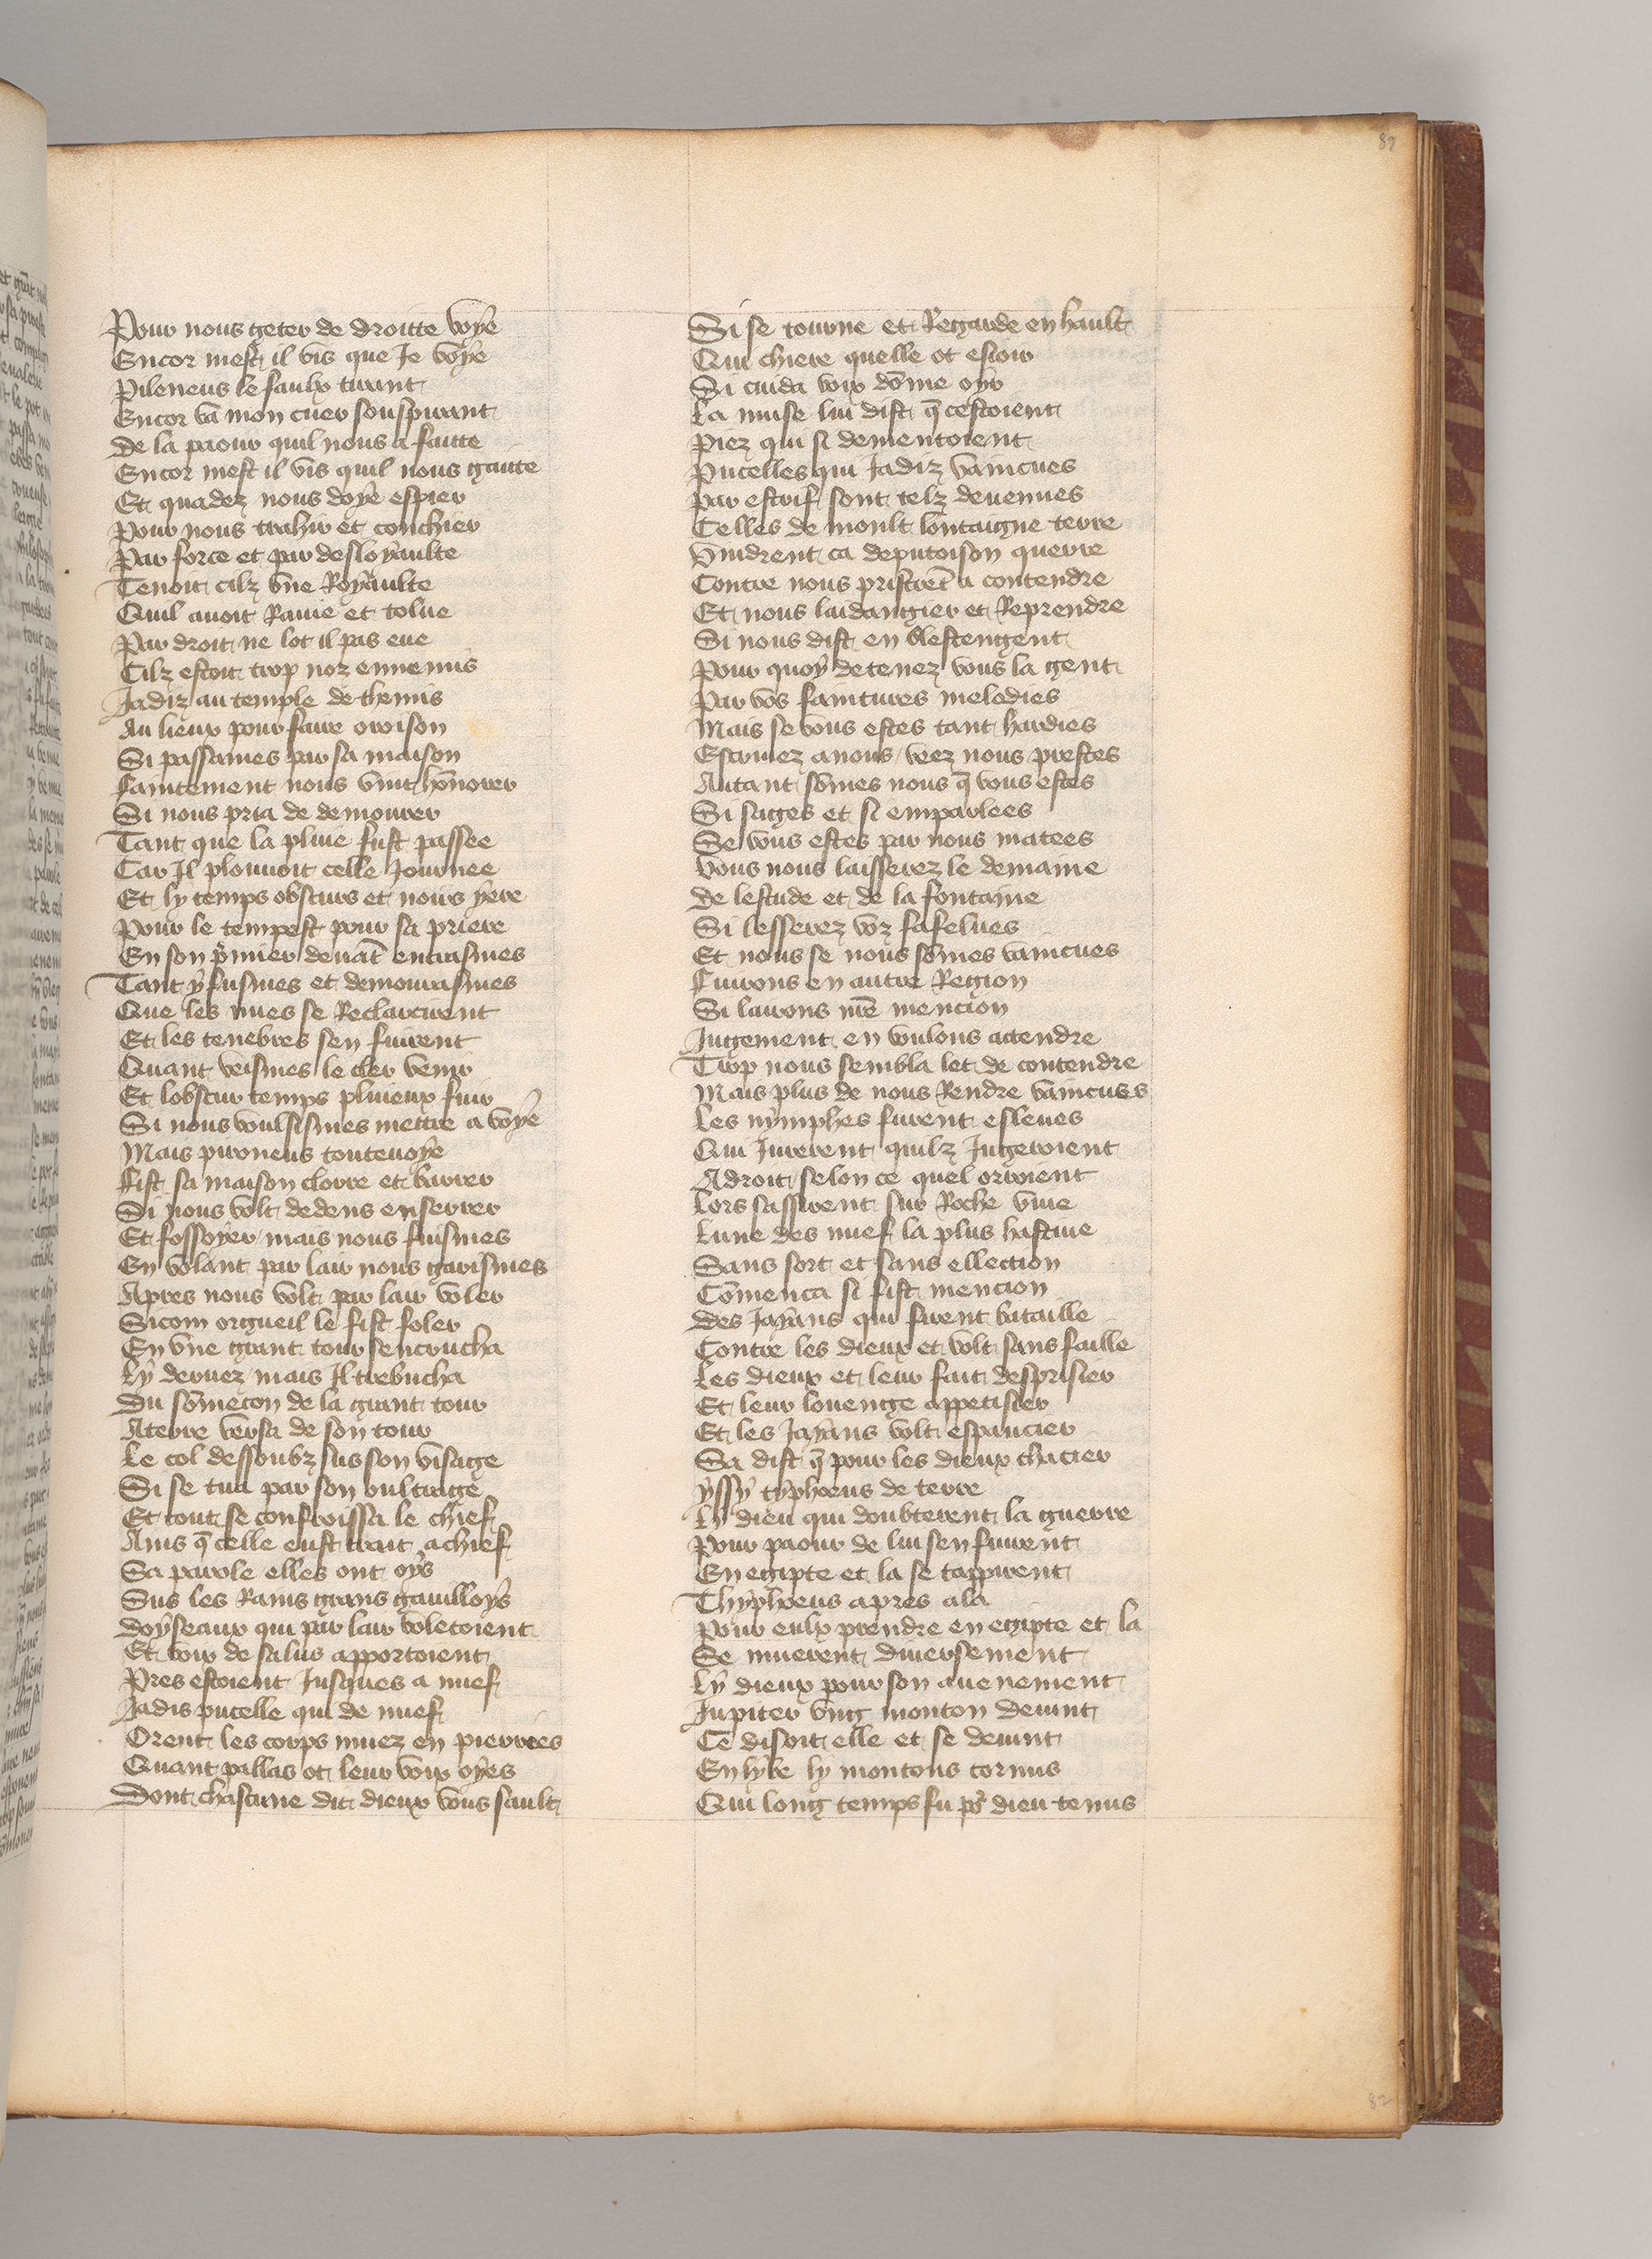 82
Pour nous geter de droitte voye
Encor mest il vis que Je voye
Pileneus le faulx tirant
Encor va mon cuer souspirant
De la paour quil nous a faitte
Encor mest il vis quil nous gaite
Et quadez nous doye espier
Pour nous trahir et conchier
Par force et par desloyaulte
Tenoit cilz vne Royaulte
Quil auoit Rauie et tolue
Par droit ne lot il pas eue
Cilz estoit trop noz ennemis
Jadiz au temple de themis
Au lieux pour faire oroison
Si passames par sa maison
Faintement nous vint hōnorer
Si nous pria de demourer
Tant que la pluie fust passee
Car Il plouuoit celle Journee
Et ly temps obscurs et noirs yere
Pour le tempest pour sa priere
En son p̄mier deuāt entrasmes
Tant y fusmes et demourasmes
Que les nues se Reclarcirent
Et les tenebres sen fuirent
Quant veismes le cler venir
Et lobscur temps pluieux fuir
Si nous voulsismes mettre a voye
Mais pironeus toutenoye
Fist sa maison clorre et barrer
Si nous volt dedens enserrer
Et fossoyer mais nous fuismes
En volant par lair nous garismes
Apres nous volt par lair voler
Sicom orgueil le fist foler
En vne grant tour sencrucha
Ly deruez mais Il trebucha
Du sōmecon de la grant tour
A terre versa de son tour
Le col dessoubz sus son visage
Si se tua par son oultrage
Et tout se confroissa le chief
Ains q̄ celle eust trait a chief
Sa parole elles ont oys
Sus les Rains grans gauilloys
Doyseaux qui par lair voletoient
Et voix de salus apportoient
Pres estoient Jusques a nuef
Jadis pucelle qui de nuef
Orent les corps muez en pierrees
Quant pallas ot leur voix oyes
Dont chascune dit dieux vous sault
Si se tourne et Regarde en hault
Qui chiere quelle ot esioir
Si cuida voix dōme oyr
La muse lui dist q̄ cestoient
Piez qui si dementoient
Pucelles qui Jadiz vaincues
Par estrif sont telz deuenues
Celles de moult lontaigne terre
Vindrent ca deputoison querre
Contre nous pristrēt a contendre
Et nous laidangier et Reprendre
Si nous dist en blestengent
Pour quoy detenez vous la gent
Par vos faintures melodies
Mais se vous estes tant hardies
Estriuez a nous / veez nous prestes
Autant sōmes nous q̄ vous estes
Si sages et si emparlees
Se vous estes par nous matees
Vous nous laisserez le demaine
De lestude et de la fontaine
Si lesserez voz fafelues
Et nous se nous sōmes vaincues
Fuirons en autre Region
Si lairons nrē mencion
Jugement en voulons attendre
Trop nous sembla let de contendre
Mais plus de nous Rendre vaincues
Les nymphes furent esleues
Qui Jurerent quilz Jugeroient
A droit selon ce quel orroient
Lors sassirent sur Roche viue
Lune des nuef la plus hastiue
Sans sort et sans ellection
Cōmenca si fist mencion
Des Jayans qui firent bataille
Contre les dieux et volt sans faille
Les dieux et leur fait desprisier
Et leur louenge appetisier
Et les Jayans volt espaucier
Sa dist q̄ pour les dieux chacier
yssy typhoeus de terre
Ly dieu qui doubterent la guerre
Pour paour de lui sen fuirent
En egipte et la se tappirent
Thyphoeus apres ala
Pour eulx prendre en egipte et la
Se muerent diuersement
Ly dieux pour son auenement
Jupiter vng mouton deuint
Ce disoit elle et se deuint
En lybe ly moutons cornus
Qui long temps fu po᷑ dieu tenus
82